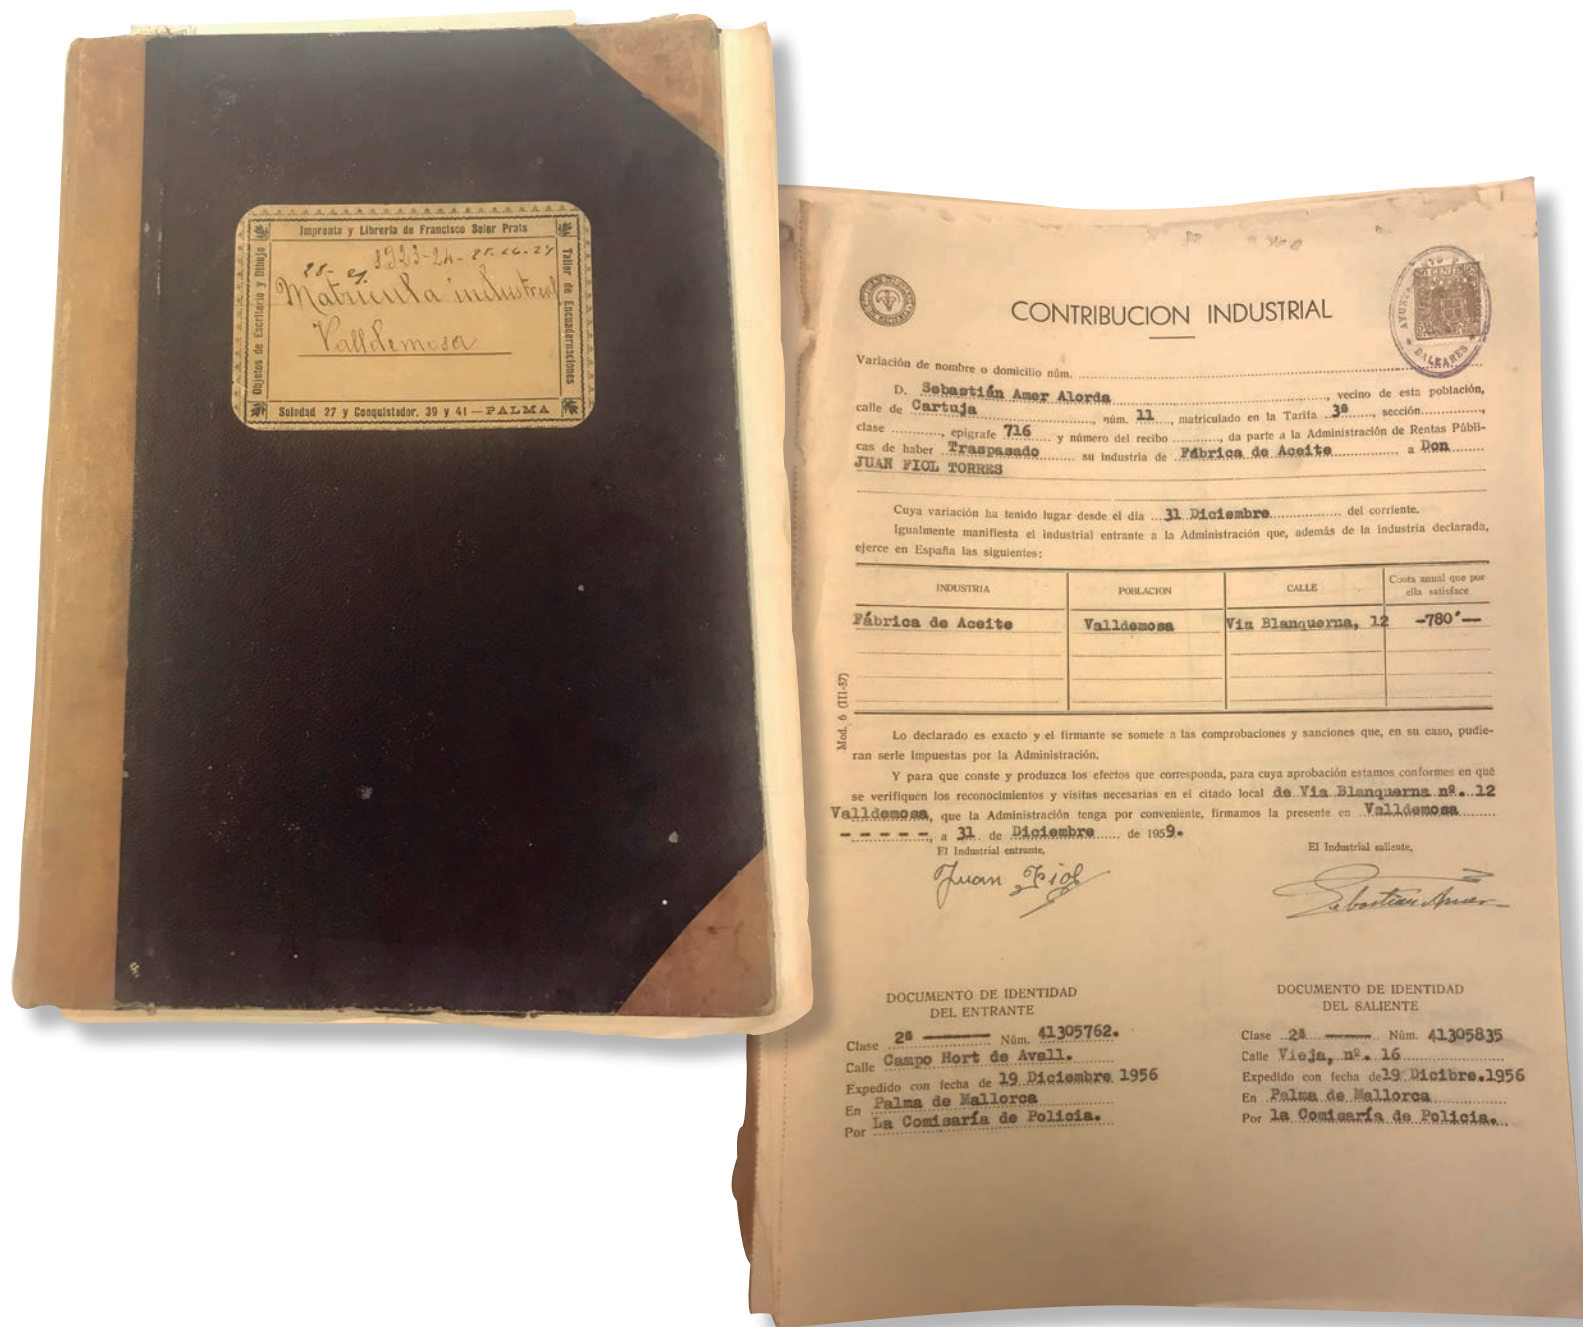 Imprenta y Librería de Francisco Soler Prats
Objetos de Escritorio y Dibujo
Taller de Encuadernaciones
1923-24-25-26-27
28-29
Matrícula industrial
Valldemosa
Soledad 27 y Conquistador, 39 y 41 — PALMA
CONTRIBUCION INDUSTRIAL
BALEARES
Variación de nombre o domicilio núm.
D. Sebastián Amer Alorda, vecino de esta población,
calle de Cartuja, núm. 11, matriculado en la Tarifa 3ª, sección
clase, epígrafe 716 y número del recibo, da parte a la Administración de Rentas Públi-
cas de haber Traspasado su industria de Fábrica de Aceite a Don
JUAN FIOL TORRES
Cuya variación ha tenido lugar desde el día 31 Diciembre del corriente.
Igualmente manifiesta el industrial entrante a la Administración que, además de la industria declarada,
ejerce en España las siguientes:
INDUSTRIA POBLACION CALLE Cuota anual que por
ella satisface
Fábrica de Aceite Valldemosa Via Blanquerna, 12 -780'--
Mod. 6 (III-57)
Lo declarado es exacto y el firmante se somete a las comprobaciones y sanciones que, en su caso, pudie-
ran serle impuestas por la Administración.
Y para que conste y produzca los efectos que corresponda, para cuya aprobación estamos conformes en que
se verifiquen los reconocimientos y visitas necesarias en el citado local de Via Blanquerna nº. 12
Valldemosa, que la Administración tenga por conveniente, firmamos la presente en Valldemosa
- - - - -, a 31 de Diciembre de 1959.
El Industrial entrante, El Industrial saliente,
Juan Fiol Sebastián Amer
DOCUMENTO DE IDENTIDAD
DEL ENTRANTE
Clase 2ª Núm. 41305762.
Calle Campo Hort de Avell.
Expedido con fecha de 19 Diciembre 1956
En Palma de Mallorca
Por La Comisaría de Policia.
DOCUMENTO DE IDENTIDAD
DEL SALIENTE
Clase 2ª Núm. 41305835
Calle Vieja, nº. 16
Expedido con fecha de 19 Dicibre.1956
En Palma de Mallorca
Por la Comisaría de Policia.